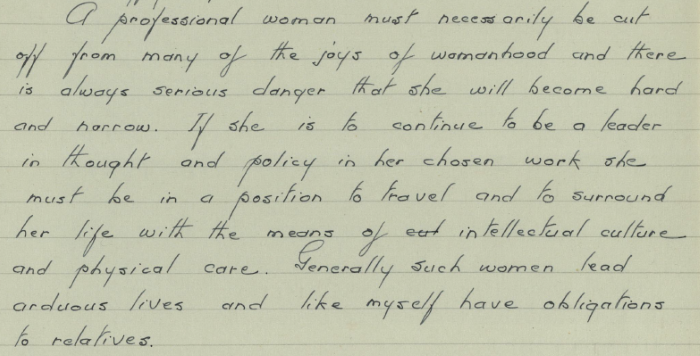 A professional woman must necessarily be cut
off from many of the joys of womanhood and there
is always serious danger that she will become hard
and narrow. If she is to continue to be a leader
in thought and policy in her chosen work she
must be in a position to travel and to surround
her life with the means of cut intellectual culture
and physical care. Generally such women lead
arduous lives and like myself have obligations
to relatives.